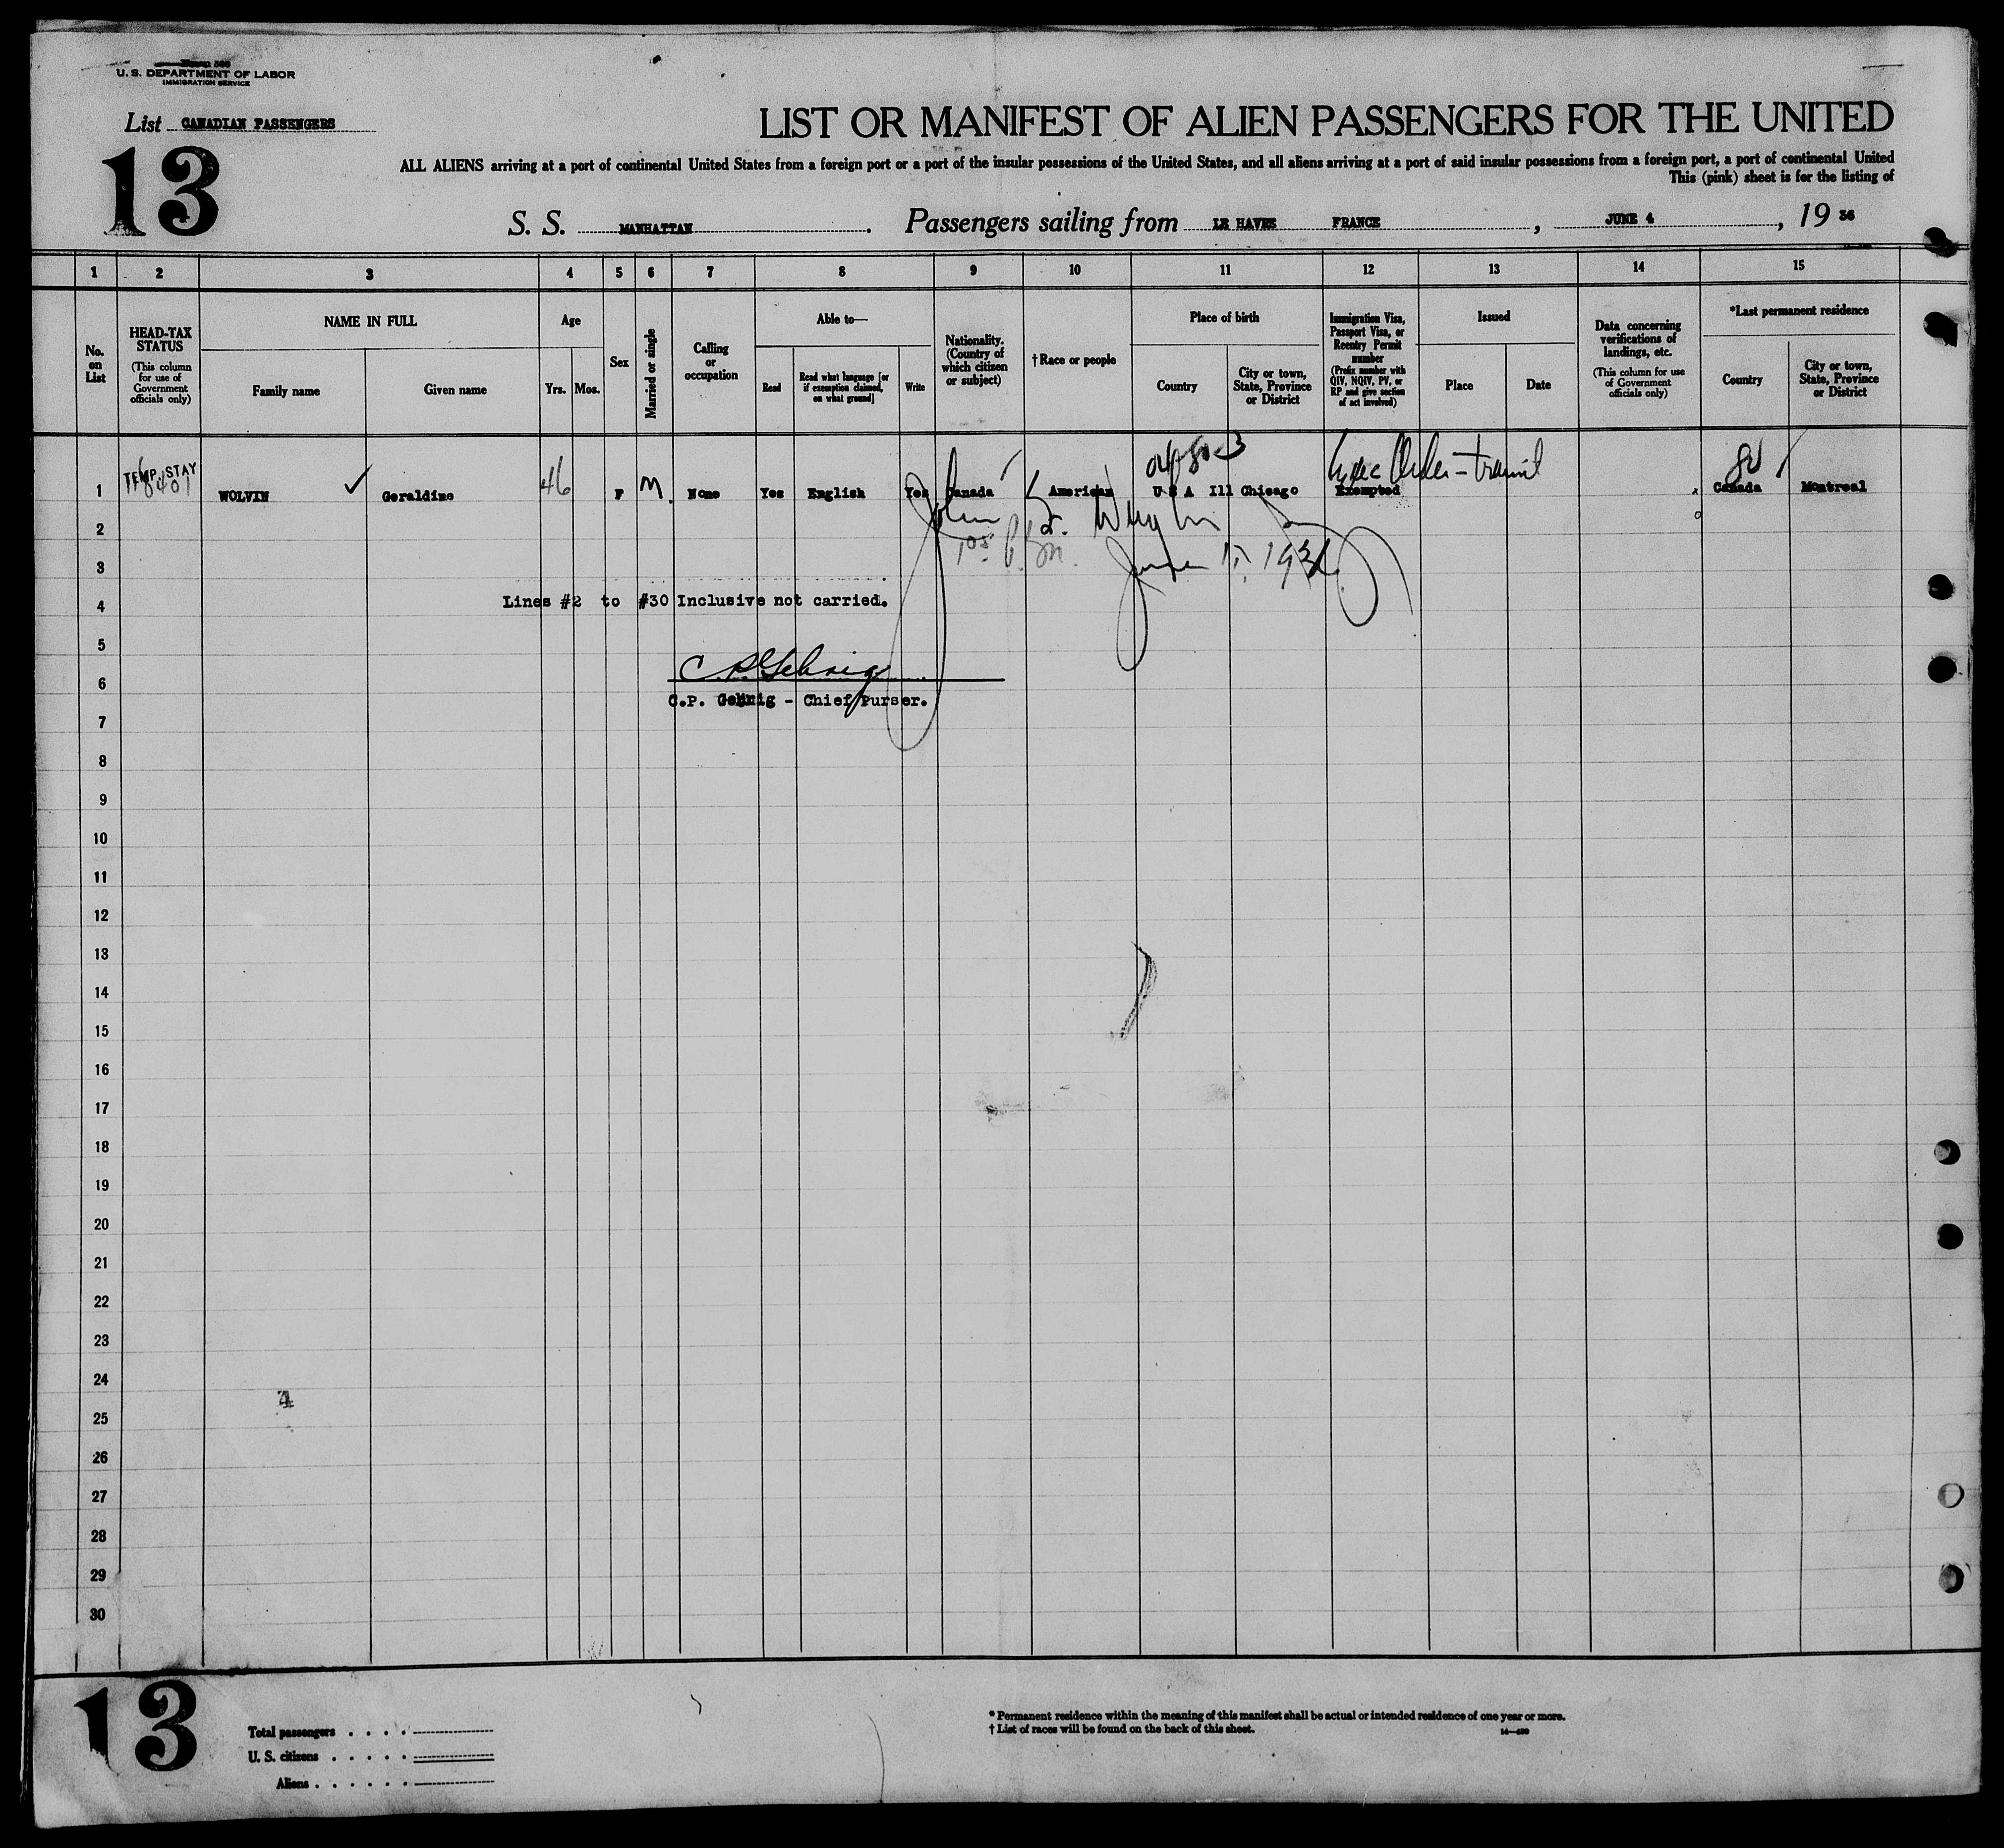 U. S. DEPARTMENT OF LABOR
IMMIGRATION SERVICE
List CANADIAN PASSENGERS
13
LIST OR MANIFEST OF ALIEN PASSENGERS FOR THE UNITED
ALL ALIENS arriving at a port of continental United States from a foreign port or a port of the insular possessions of the United States, and all aliens arriving at a port of said insular possessions from a foreign port, a port of continental United
This (pink) sheet is for the listing of
S. S. MANHATTAN. Passengers sailing from LE HAVRE FRANCE, JUNE 4, 19 36
1 2 3 4 5 6 7 8 9 10 11 12 13 14 15
No. on List
HEAD-TAX STATUS (This column for use of Government officials only)
NAME IN FULL
Family name
Given name
Age
Yrs. Mos.
Sex
Married or single
Calling or occupation
Able to—
Read
Read what language [or if exemption claimed, on what ground]
Write
Nationality. (Country of which citizen or subject)
† Race or people
Place of birth
Country
City or town, State, Province or District
Immigration Visa, Passport Visa, or Reentry Permit number (Prefix number with QIV, NQIV, PV, or RP and give section of act involved)
Issued
Place
Date
Data concerning verifications of landings, etc. (This column for use of Government officials only)
*Last permanent residence
Country
City or town, State, Province or District
TEMP. STAY
1 WOLVIN ✓ Geraldine 46 F M None Yes English Yes Canada American U S A Ill Chicago Exempted Canada Montreal
2
John
3
June 1936
4 Lines #2 to #30 Inclusive not carried.
5
C. P. Gehrig
6
C.P. Gehrig - Chief Purser.
7
8
9
10
11
12
13
14
15
16
17
18
19
20
21
22
23
24
4
25
26
27
28
29
30
13
Total passengers . . . .
U. S. citizens . . . . .
Aliens . . . . . .
* Permanent residence within the meaning of this manifest shall be actual or intended residence of one year or more.
† List of races will be found on the back of this sheet.